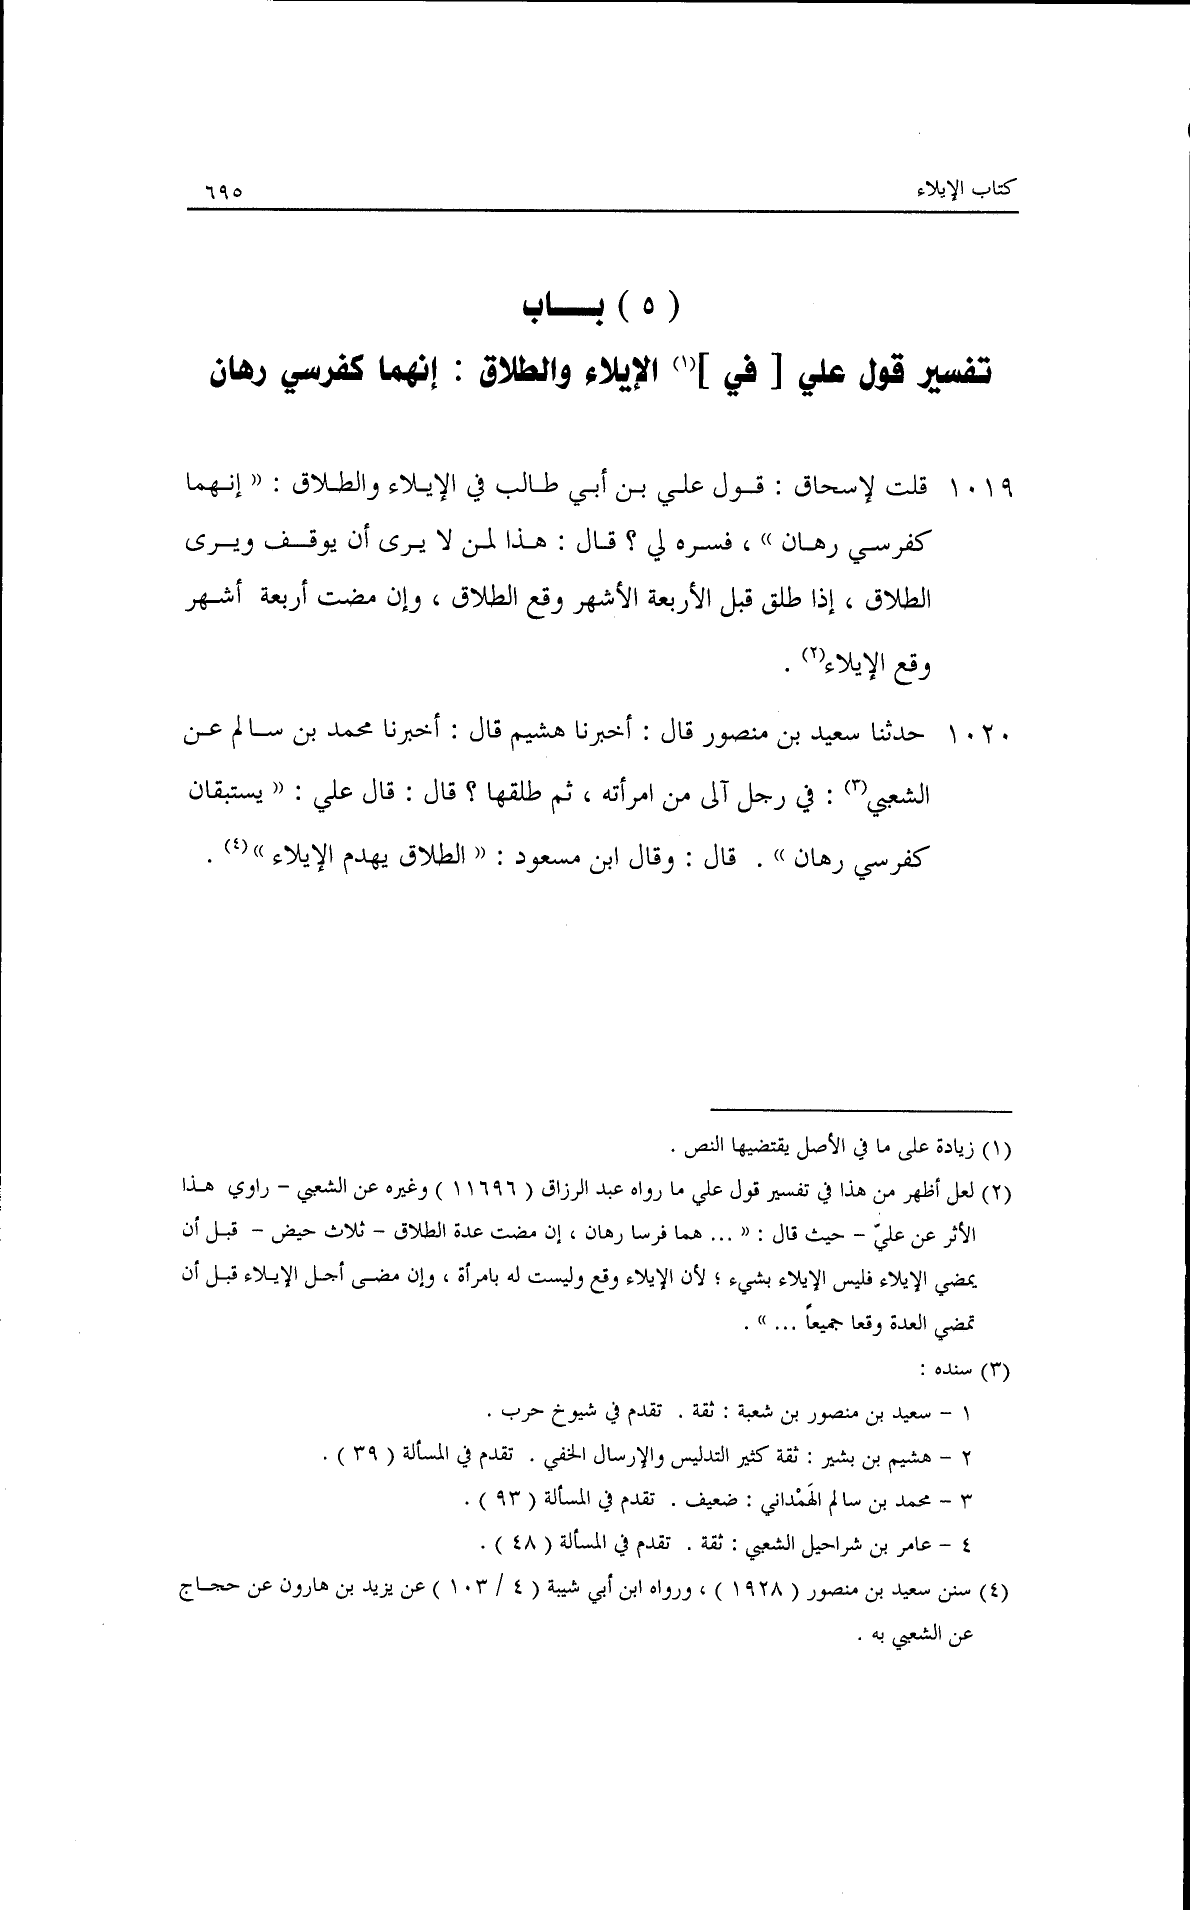 كتاب الإيلاء
٦٩٥
( ٥ ) بــــاب
تفسير قول علي [ في ](١) الإيلاء والطلاق : إنهما كفرسي رهان
١٠١٩ قلت لإسحاق : قـول علـي بـن أبـي طالب في الإيلاء والطلاق : « إنـهما
كفرسـي رهـان » ، فسره لي ؟ قـال : هـذا لمن لا يـرى أن يوقـف ويـرى
الطلاق ، إذا طلق قبل الأربعة الأشهر وقع الطلاق ، وإن مضت أربعة أشـهر
وقع الإيلاء(٢) .
١٠٢٠ حدثنا سعيد بن منصور قال : أخبرنا هشيم قال : أخبرنا محمد بن سـالم عـن
الشعبي(٣) : في رجل آلى من امرأته ، ثم طلقها ؟ قال : قال علي : « يستبقان
كفرسي رهان » . قال : وقال ابن مسعود : « الطلاق يهدم الإيلاء »(٤) .
(١) زيادة على ما في الأصل يقتضيها النص .
(٢) لعل أظهر من هذا في تفسير قول علي ما رواه عبد الرزاق ( ١١٦٩٦ ) وغيره عن الشعبي – راوي هـذا
الأثر عن عليّ – حيث قال : « ... هما فرسا رهان ، إن مضت عدة الطلاق – ثلاث حيض – قبـل أن
يمضي الإيلاء فليس الإيلاء بشيء ؛ لأن الإيلاء وقع وليست له بامرأة ، وإن مضـى أجـل الإيـلاء قبـل أن
تمضي العدة وقعا جميعاً ... » .
(٣) سنده :
١ – سعيد بن منصور بن شعبة : ثقة . تقدم في شيوخ حرب .
٢ – هشيم بن بشير : ثقة كثير التدليس والإرسال الخفي . تقدم في المسألة ( ٣٩ ) .
٣ – محمد بن سالم الهَمْداني : ضعيف . تقدم في المسألة ( ٩٣ ) .
٤ – عامر بن شراحيل الشعبي : ثقة . تقدم في المسألة ( ٤٨ ) .
(٤) سنن سعيد بن منصور ( ١٩٢٨ ) ، ورواه ابن أبي شيبة ( ٤ / ١٠٣ ) عن يزيد بن هارون عن حجـاج
عن الشعبي به .